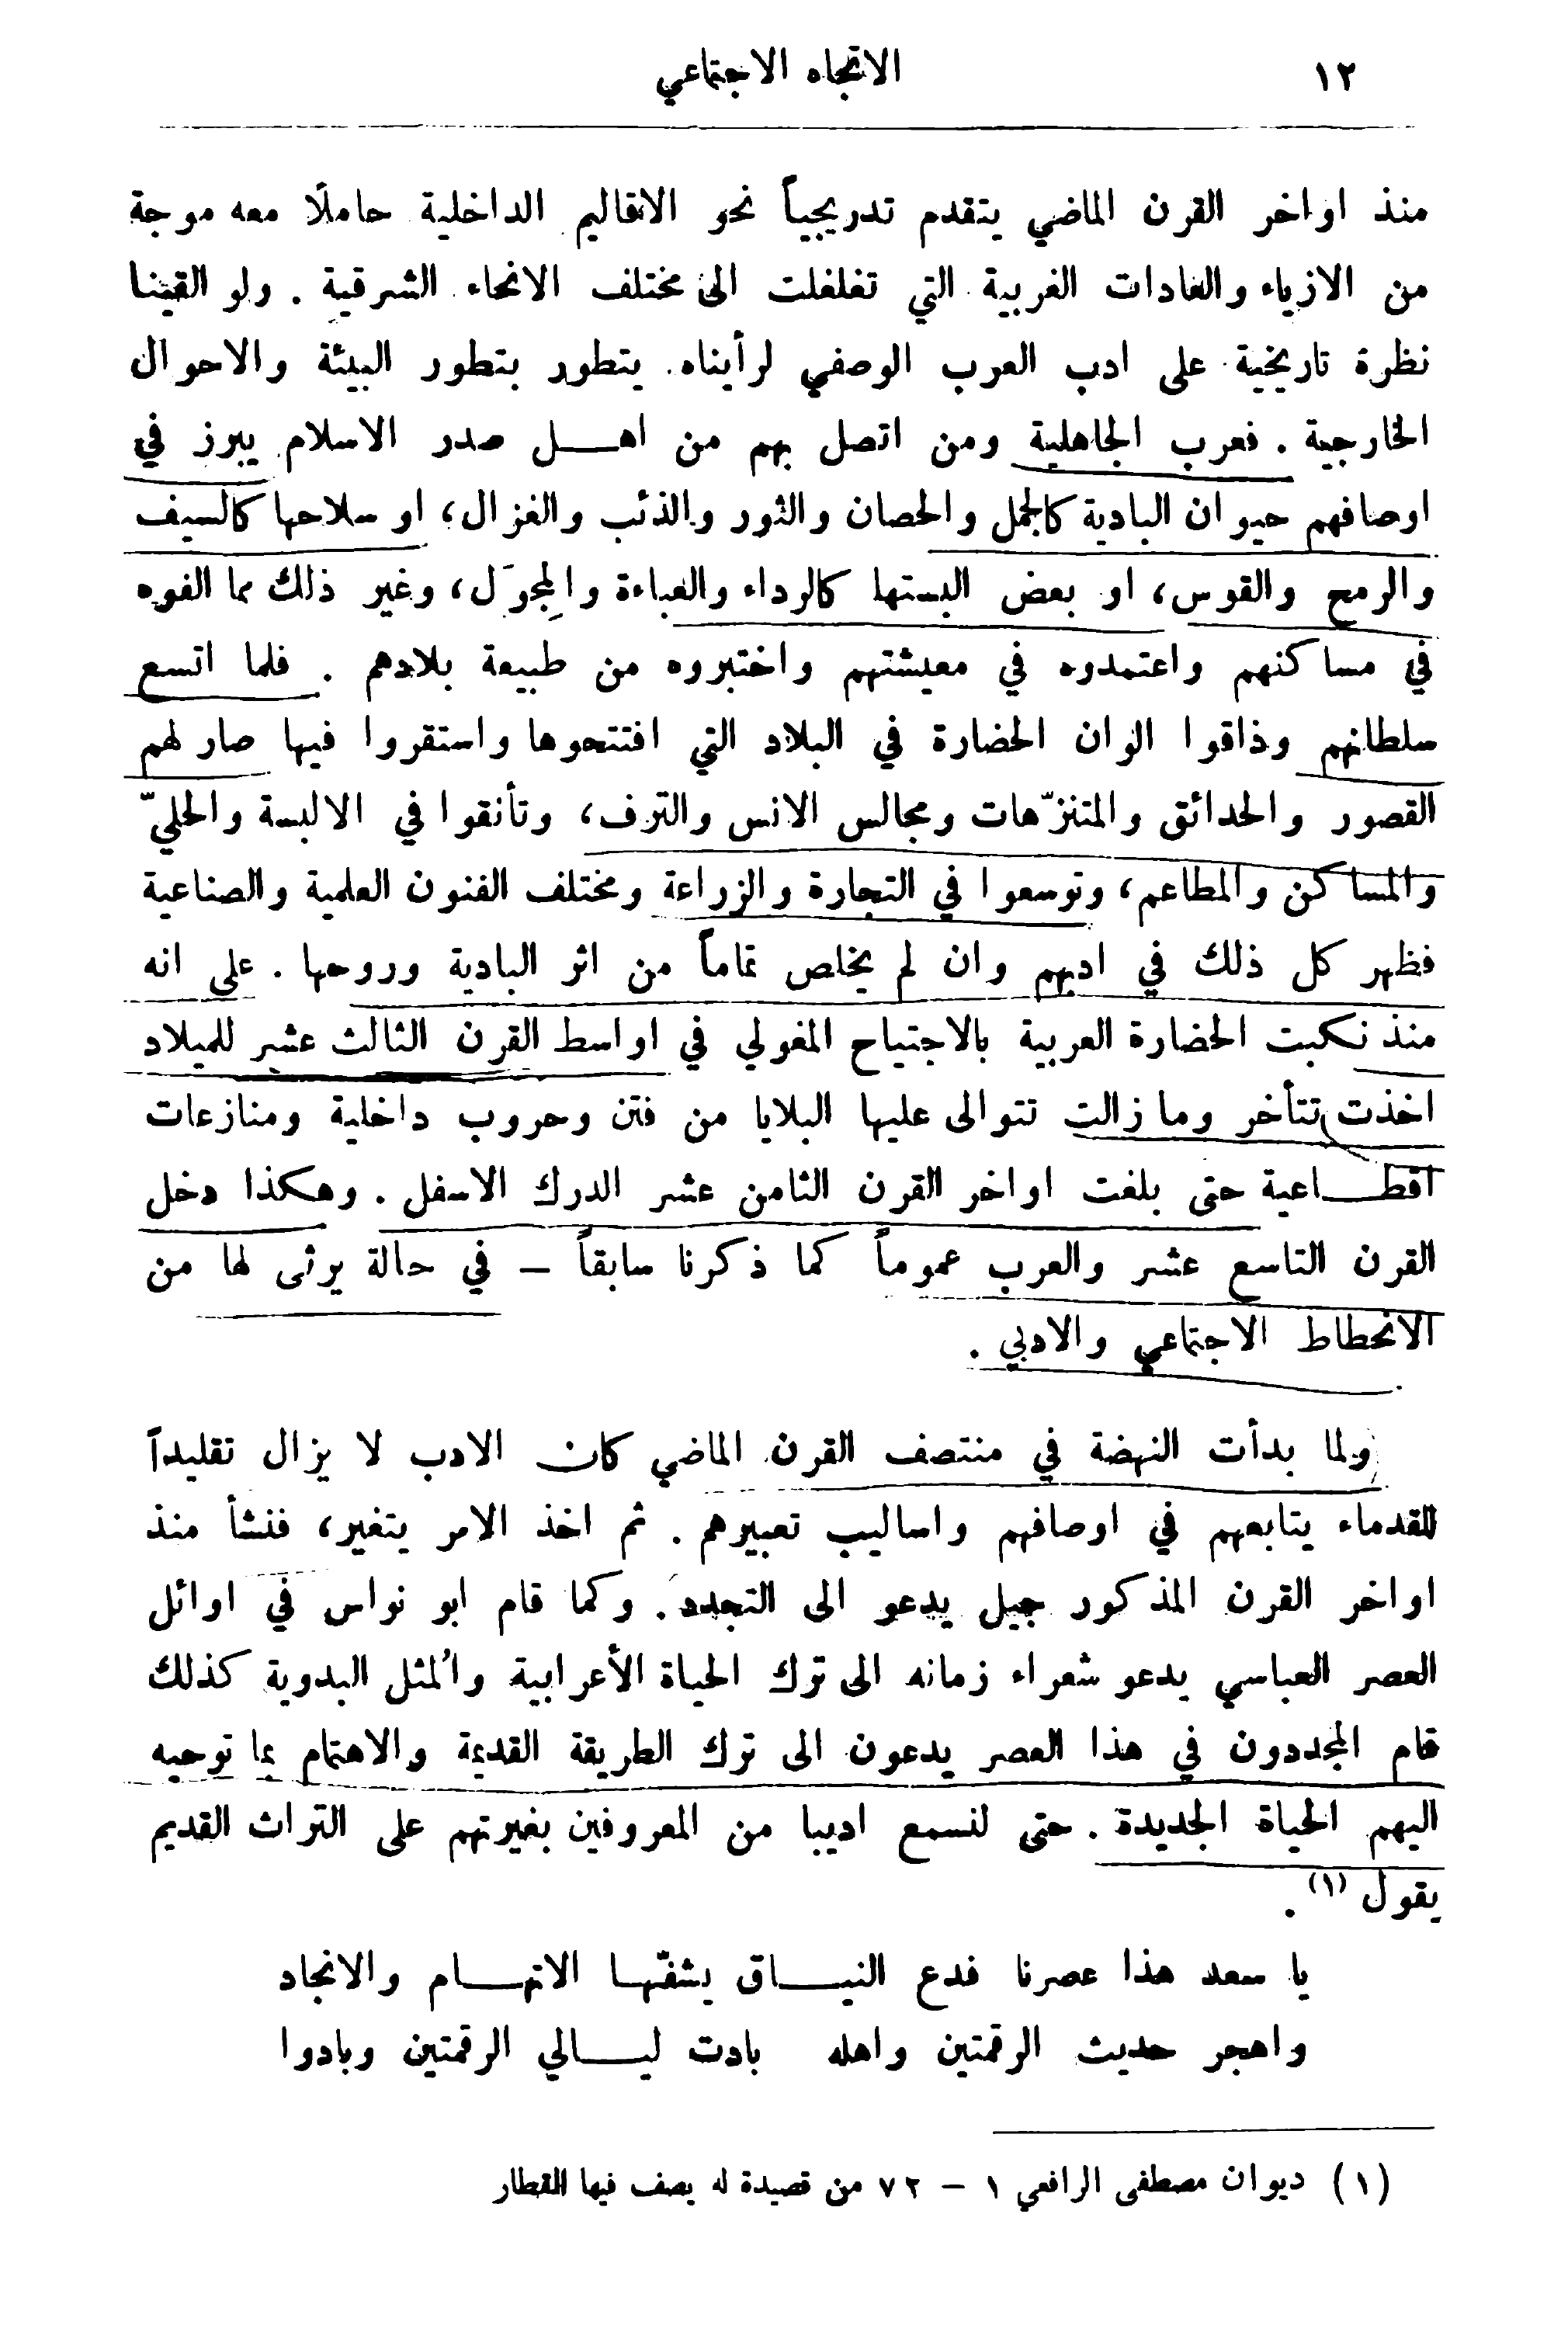 ١٢
الاتجاه الاجتماعي
منذ اواخر القرن الماضي يتقدم تدريجياً نحو الاقاليم الداخلية حاملًا معه موجة
من الازياء والعادات الغربية التي تغلغلت الى مختلف الانحاء الشرقية . ولو القينا
نظرة تاريخية على ادب العرب الوصفي لرأيناه يتطور بتطور البيئة والاحوال
الخارجية . فعرب الجاهلية ومن اتصل بهم من اهــل صدر الاسلام يبرز في
اوصافهم حيوان البادية كالجمل والحصان والثور والذئب والغزال، او سلاحها كالسيف
والرمح والقوس، او بعض البستها كالرداء والعباءة والمِجوَل، وغير ذلك مما الفوه
في مساكنهم واعتمدوه في معيشتهم واختبروه من طبيعة بلادهم . فلما اتسع
سلطانهم وذاقوا الوان الحضارة في البلاد التي افتتحوها واستقروا فيها صار لهم
القصور والحدائق والمتنزّهات ومجالس الانس والترف، وتأنقوا في الالبسة والحليّ
والمساكن والمطاعم، وتوسعوا في التجارة والزراعة ومختلف الفنون العلمية والصناعية
فظهر كل ذلك في ادبهم وان لم يخلص تماماً من اثر البادية وروحها . على انه
منذ نكبت الحضارة العربية بالاجتياح المغولي في اواسط القرن الثالث عشر للميلاد
اخذت تتأخر وما زالت تتوالى عليها البلايا من فتن وحروب داخلية ومنازعات
اقطــاعية حتى بلغت اواخر القرن الثامن عشر الدرك الاسفل . وهكذا دخل
القرن التاسع عشر والعرب عموماً كما ذكرنا سابقاً – في حالة يرثى لها من
الانحطاط الاجتماعي والادبي .
ولما بدأت النهضة في منتصف القرن الماضي كان الادب لا يزال تقليداً
للقدماء يتابعهم في اوصافهم واساليب تعبيرهم . ثم اخذ الامر يتغير، فنشأ منذ
اواخر القرن المذكور جيل يدعو الى التجدد . وكما قام ابو نواس في اوائل
العصر العباسي يدعو شعراء زمانه الى ترك الحياة الأعرابية والمُثل البدوية كذلك
قام المجددون في هذا العصر يدعون الى ترك الطريقة القديمة والاهتمام بما توحيه
اليهم الحياة الجديدة . حتى لنسمع اديبا من المعروفين بغيرتهم على التراث القديم
يقول (١) .
يا سعد هذا عصرنا فدع النيــاق يشفّهــا الاتهــام والانجاد
واهجر حديث الرقمتين واهله بادت ليــالي الرقمتين وبادوا
(١) ديوان مصطفى الرافعي ١ – ٧٢ من قصيدة له يصف فيها القطار